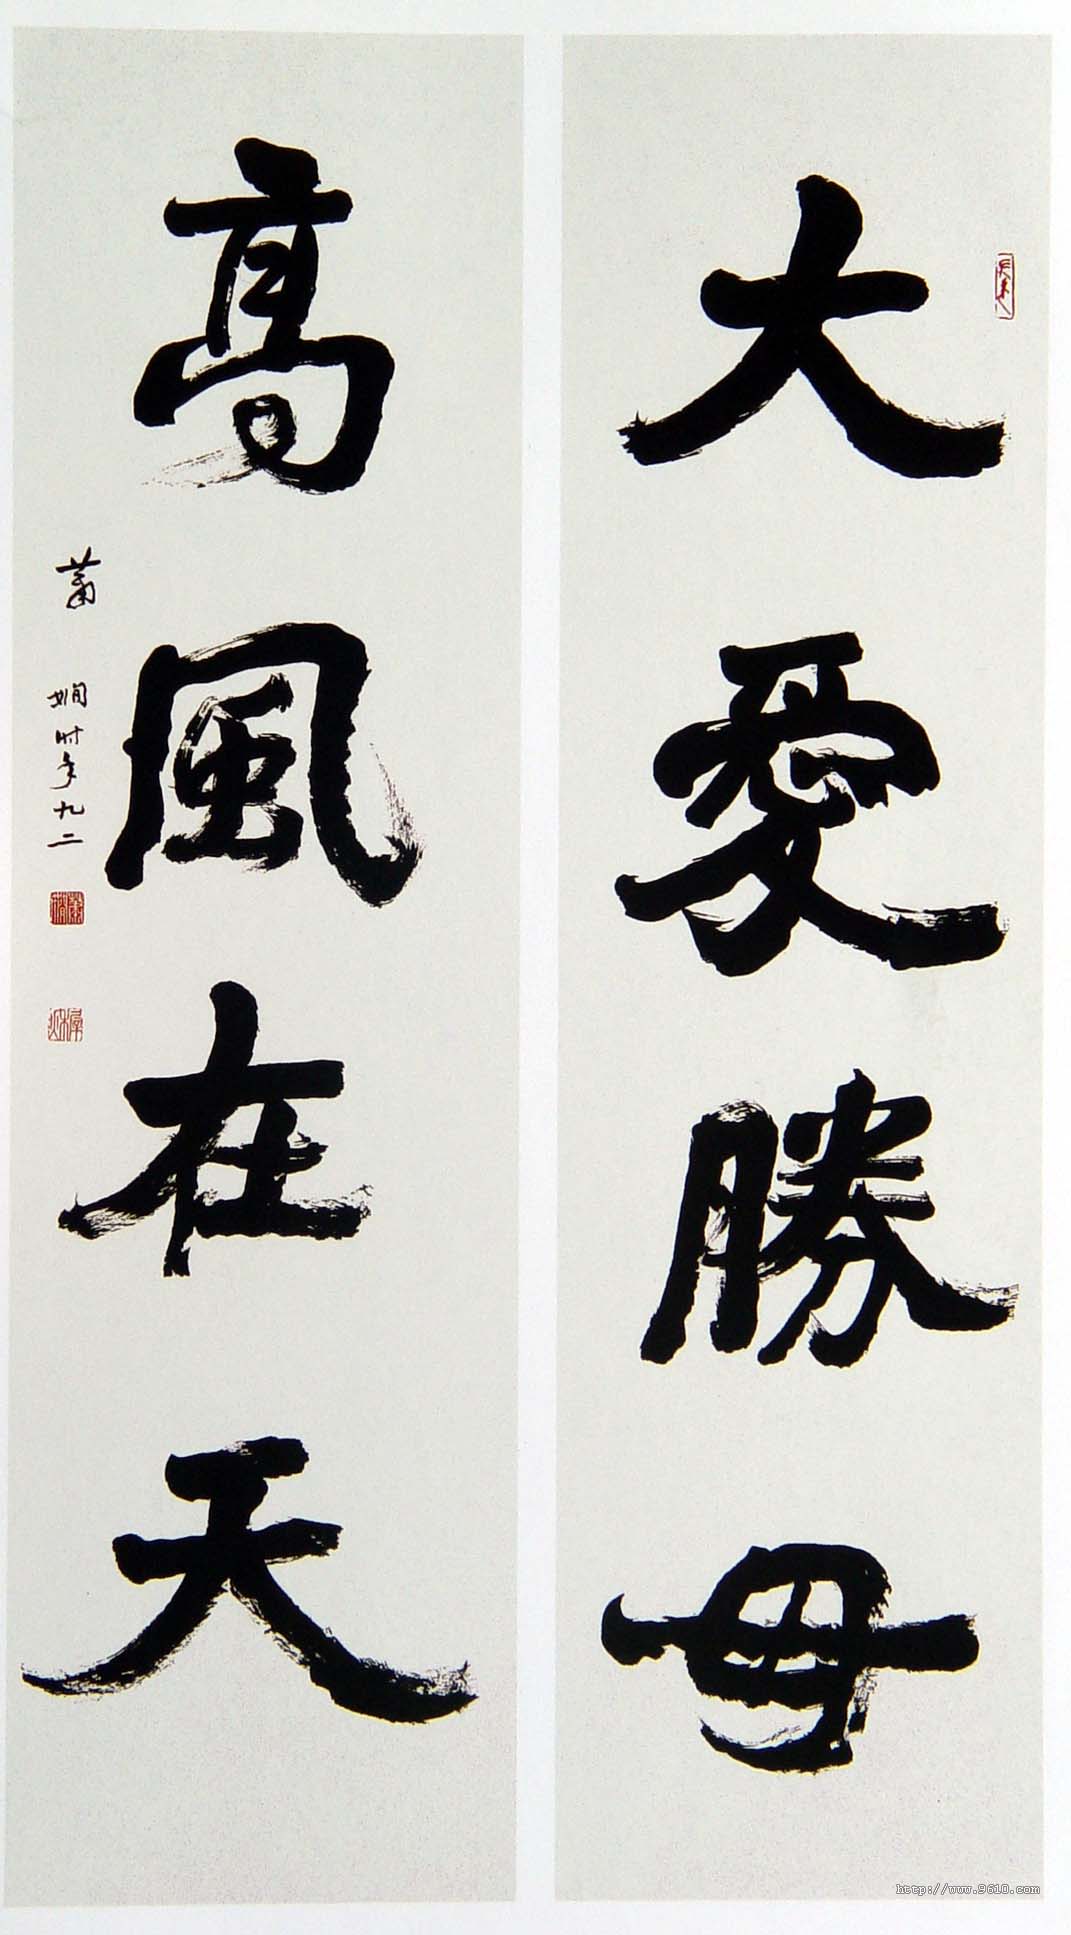 大愛勝母
高風在天
蕭嫻时年九二
http://www.9610.com